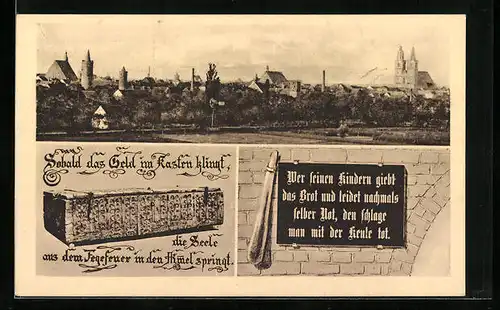 Sobald das Geld im Kasten klingt,
die Seele
aus dem Fegefeuer in den Himel springt.
Wer seinen Kindern giebt
das Brot und leidet nachmals
selber Not, den schlage
man mit der Keule tot.